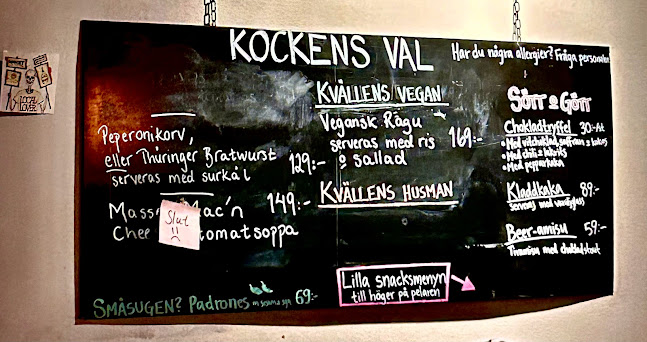 KOCKENS VAL
Har du några allergier? Fråga personalen
Peperonikorv,
eller Thüringer Bratwurst
serveras med surkål
129:-
149:-
Mass Mac'n
Chee tomatsoppa
Slut
SMÅSUGEN? Padrones 69:-
KVÄLLENS VEGAN
Vegansk Ragu
serveras med ris
o sallad
169:-
KVÄLLENS HUSMAN
Lilla snacksmenyn
till höger på pelaren
SÖTT o GÖTT
Chokladtryffel 30:-/st
• Med vitchoklad, saffran o lakrits
• Med chili o lakrits
• Med pepparkaka
Kladdkaka 89:-
serveras med vaniljglass
Beer-amisu 59:-
Tiramisu med chokladstout
LOCAL
LOVER